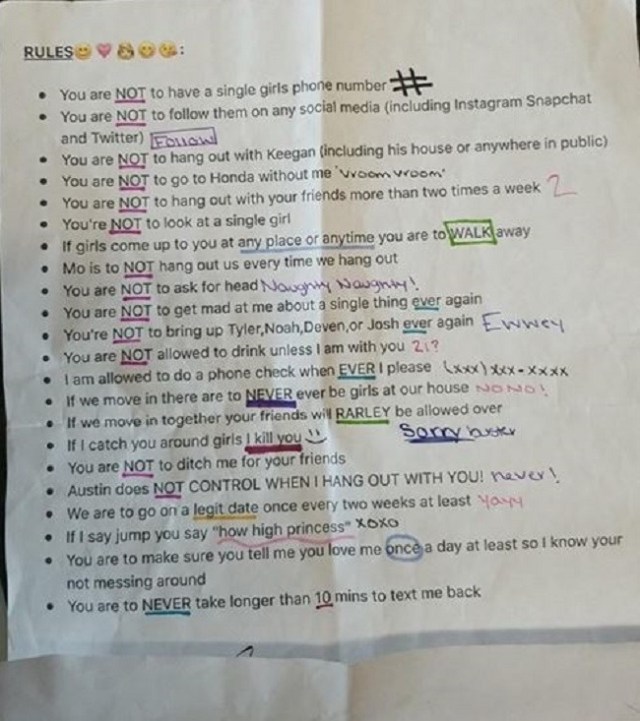 RULES😊💗👸😊😘:
• You are NOT to have a single girls phone number #
• You are NOT to follow them on any social media (including Instagram Snapchat
and Twitter) Follow
• You are NOT to hang out with Keegan (including his house or anywhere in public)
• You are NOT to go to Honda without me "vroom vroom"
• You are NOT to hang out with your friends more than two times a week 2
• You're NOT to look at a single girl
• If girls come up to you at any place or anytime you are to WALK away
• Mo is to NOT hang out us every time we hang out
• You are NOT to ask for head Naughty Naughty!
• You are NOT to get mad at me about a single thing ever again
• You're NOT to bring up Tyler,Noah,Deven,or Josh ever again Ewwey
• You are NOT allowed to drink unless I am with you 21?
• I am allowed to do a phone check when EVER I please (xxx) xxx-xxxx
• If we move in there are to NEVER ever be girls at our house NONO!
• If we move in together your friends will RARLEY be allowed over
• If I catch you around girls I kill you :) Sorry
• You are NOT to ditch me for your friends
• Austin does NOT CONTROL WHEN I HANG OUT WITH YOU! never!
• We are to go on a legit date once every two weeks at least Yayy
• If I say jump you say "how high princess" XOXO
• You are to make sure you tell me you love me once a day at least so I know your
not messing around
• You are to NEVER take longer than 10 mins to text me back